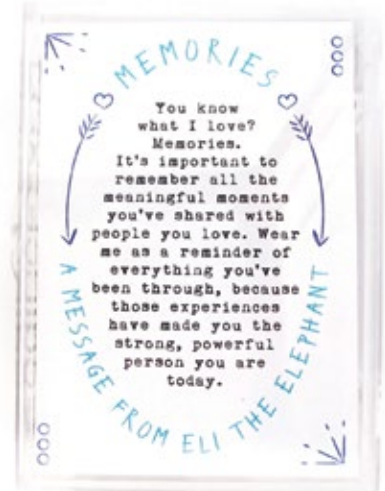 MEMORIES
You know
what I love?
Memories.
It's important to
remember all the
meaningful moments
you've shared with
people you love. Wear
me as a reminder of
everything you've
been through, because
those experiences
have made you the
strong, powerful
person you are
today.
A MESSAGE FROM ELI THE ELEPHANT